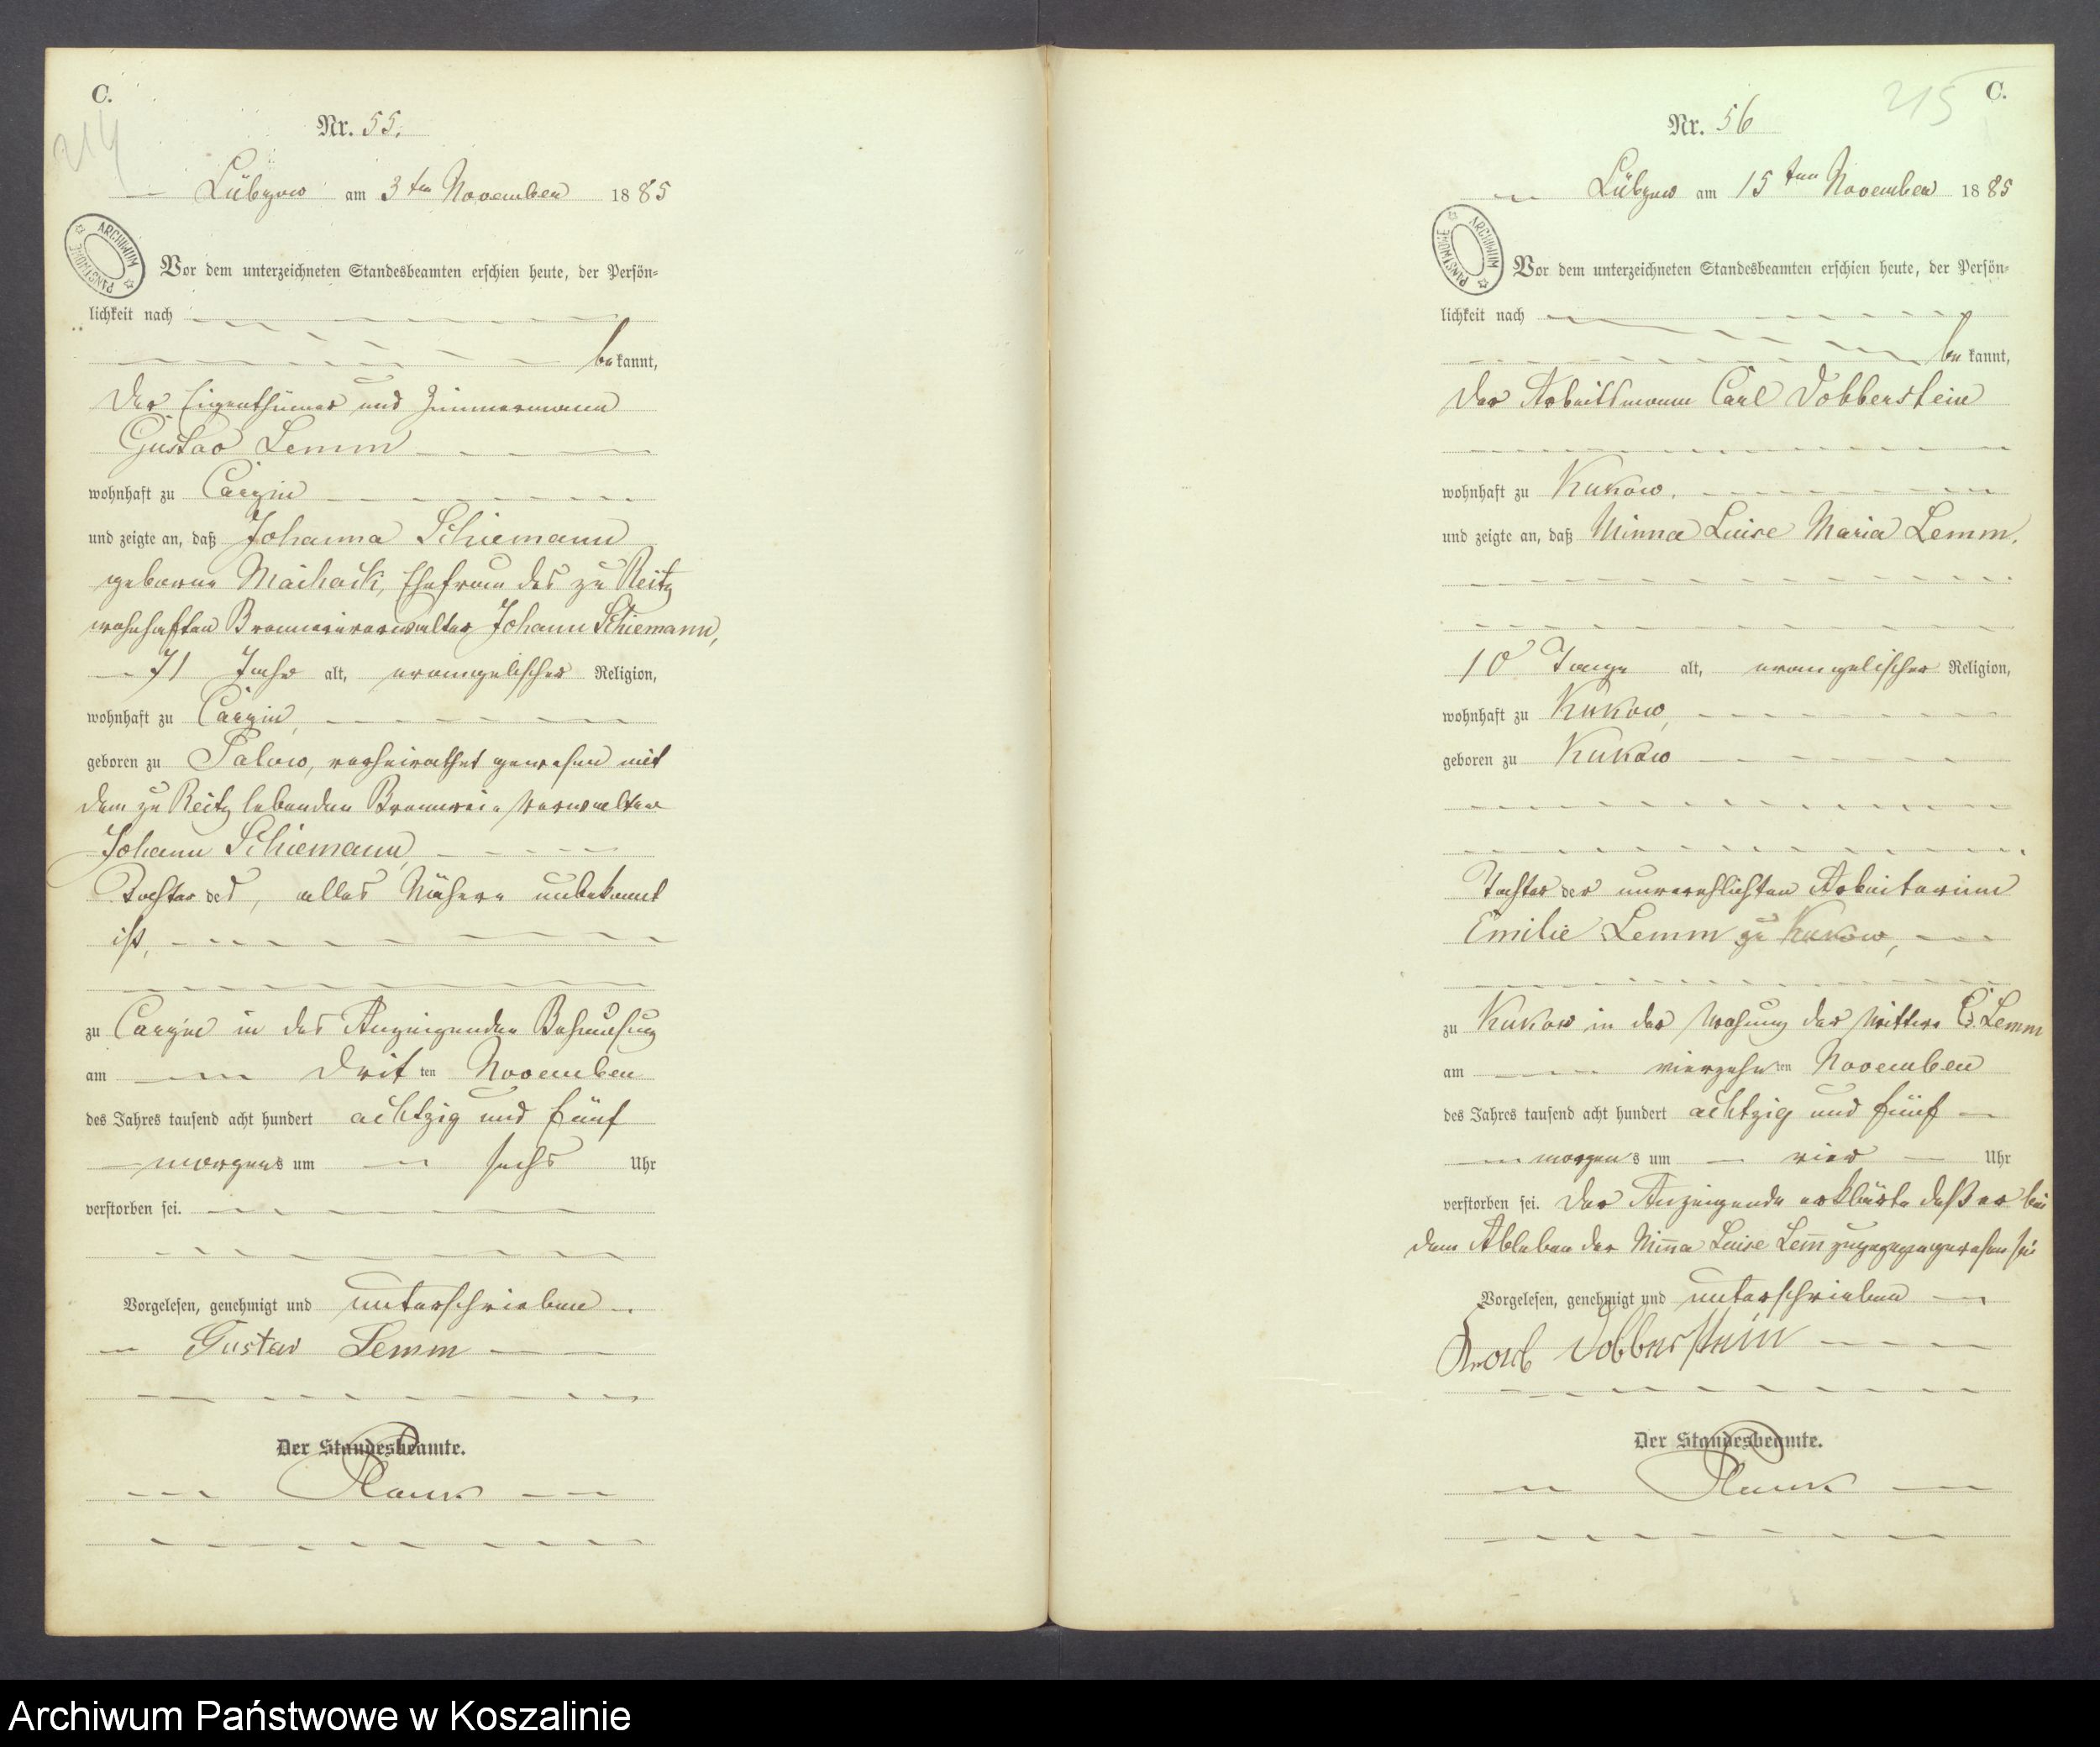 C.
214
Nr. 55.
Lübzow am 3ten November 1885
ARCHIWUM PAŃSTWOWE
Vor dem unterzeichneten Standesbeamten erschien heute, der Persön=
lichkeit nach
bekannt,
der Eigenthümer und Zimmermann
Gustav Lemm
wohnhaft zu Carzin
und zeigte an, daß Johanna Schiemann
geborne Machack, Ehefrau des zu Reitz
wohnhaften Brennereiverwalter Johann Schiemann,
71 Jahr alt, evangelischer Religion,
wohnhaft zu Carzin,
geboren zu Salow, verheirathet gewesen mit
dem zu Reitz lebenden Brennerei Verwalter
Johann Schiemann,
Tochter des, alles Nähere unbekannt
ist,
zu Carzin in des Anzeigenden Behausung
am dritten November
des Jahres tausend acht hundert achtzig und fünf
morgens um sechs Uhr
verstorben sei.
Vorgelesen, genehmigt und unterschrieben
Gustav Lemm
Der Standesbeamte.
C.
215
Nr. 56
Lübzow am 15ten November 1885
ARCHIWUM PAŃSTWOWE
Vor dem unterzeichneten Standesbeamten erschien heute, der Persön=
lichkeit nach
bekannt,
der Arbeitsmann Carl Dobberstein
wohnhaft zu Kukow,
und zeigte an, daß Minna Luise Maria Lemm,
10 Tage alt, evangelischer Religion,
wohnhaft zu Kukow,
geboren zu Kukow
Tochter der unverehlichten Arbeiterinn
Emilie Lemm zu Kukow,
zu Kukow in der Wohnung der Mutter E. Lemm
am vierzehnten November
des Jahres tausend acht hundert achtzig und fünf
morgens um vier Uhr
verstorben sei. Der Anzeigende erklärte daß er bei
dem Ableben der Miña Luise Lem̄ zugegen gewesen sei
Vorgelesen, genehmigt und unterschrieben
Dobberstein
Der Standesbeamte.
Archiwum Państwowe w Koszalinie